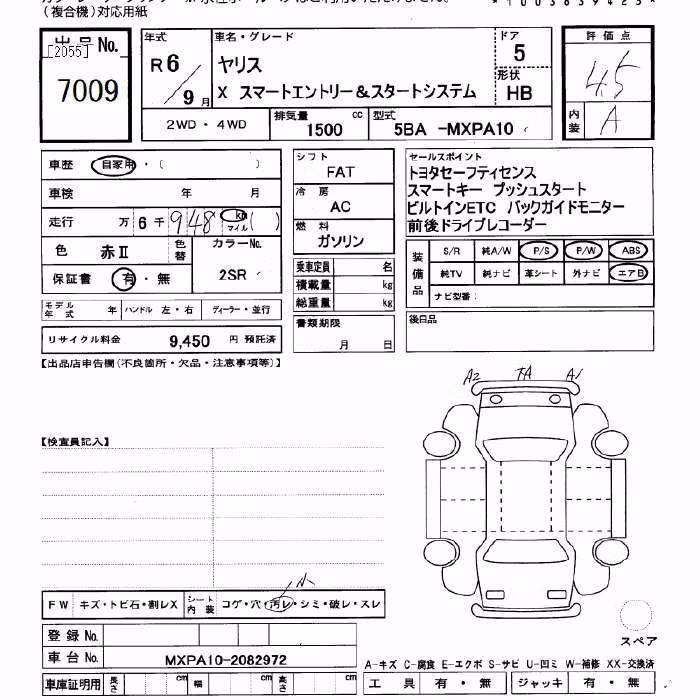 （複合機）対応用紙
*1003839423*
出品 No.
[2055]
7009
年式
R6/9月
車名・グレード
ヤリス
X スマートエントリー＆スタートシステム
ドア
5
形状
HB
評価点
4.5
内装
A
2WD・4WD
排気量 1500 cc
型式 5BA -MXPA10
車歴 自家用・（ ）
車検 年 月
走行 万 6千 948 km マイル（ ）
色 赤Ⅱ 色替
カラーNo.
2SR
保証書 有・無
モデル年式 年 ハンドル 左・右 ディーラー・並行
リサイクル料金 9,450 円 預託済
シフト
FAT
冷房
AC
燃料
ガソリン
乗車定員 名
積載量 kg
総重量 kg
書類期限
月 日
セールスポイント
トヨタセーフティセンス
スマートキー プッシュスタート
ビルトインETC バックガイドモニター
前後ドライブレコーダー
装備品
S/R 純A/W P/S P/W ABS
純TV 純ナビ 革シート 外ナビ エアB
ナビ型番：
後日品
【出品店申告欄（不良箇所・欠品・注意事項等）】
A2 A1
【検査員記入】
小
FW キズ・トビ石・割レX シート内装 コゲ・穴・汚レ・シミ・破レ・スレ
登録 No.
車台 No. MXPA10-2082972
車庫証明用 長さ cm 幅 cm 高さ cm
スペア
A-キズ C-腐食 E-エクボ S-サビ U-凹ミ W-補修 XX-交換済
工具 有・無 ジャッキ 有・無